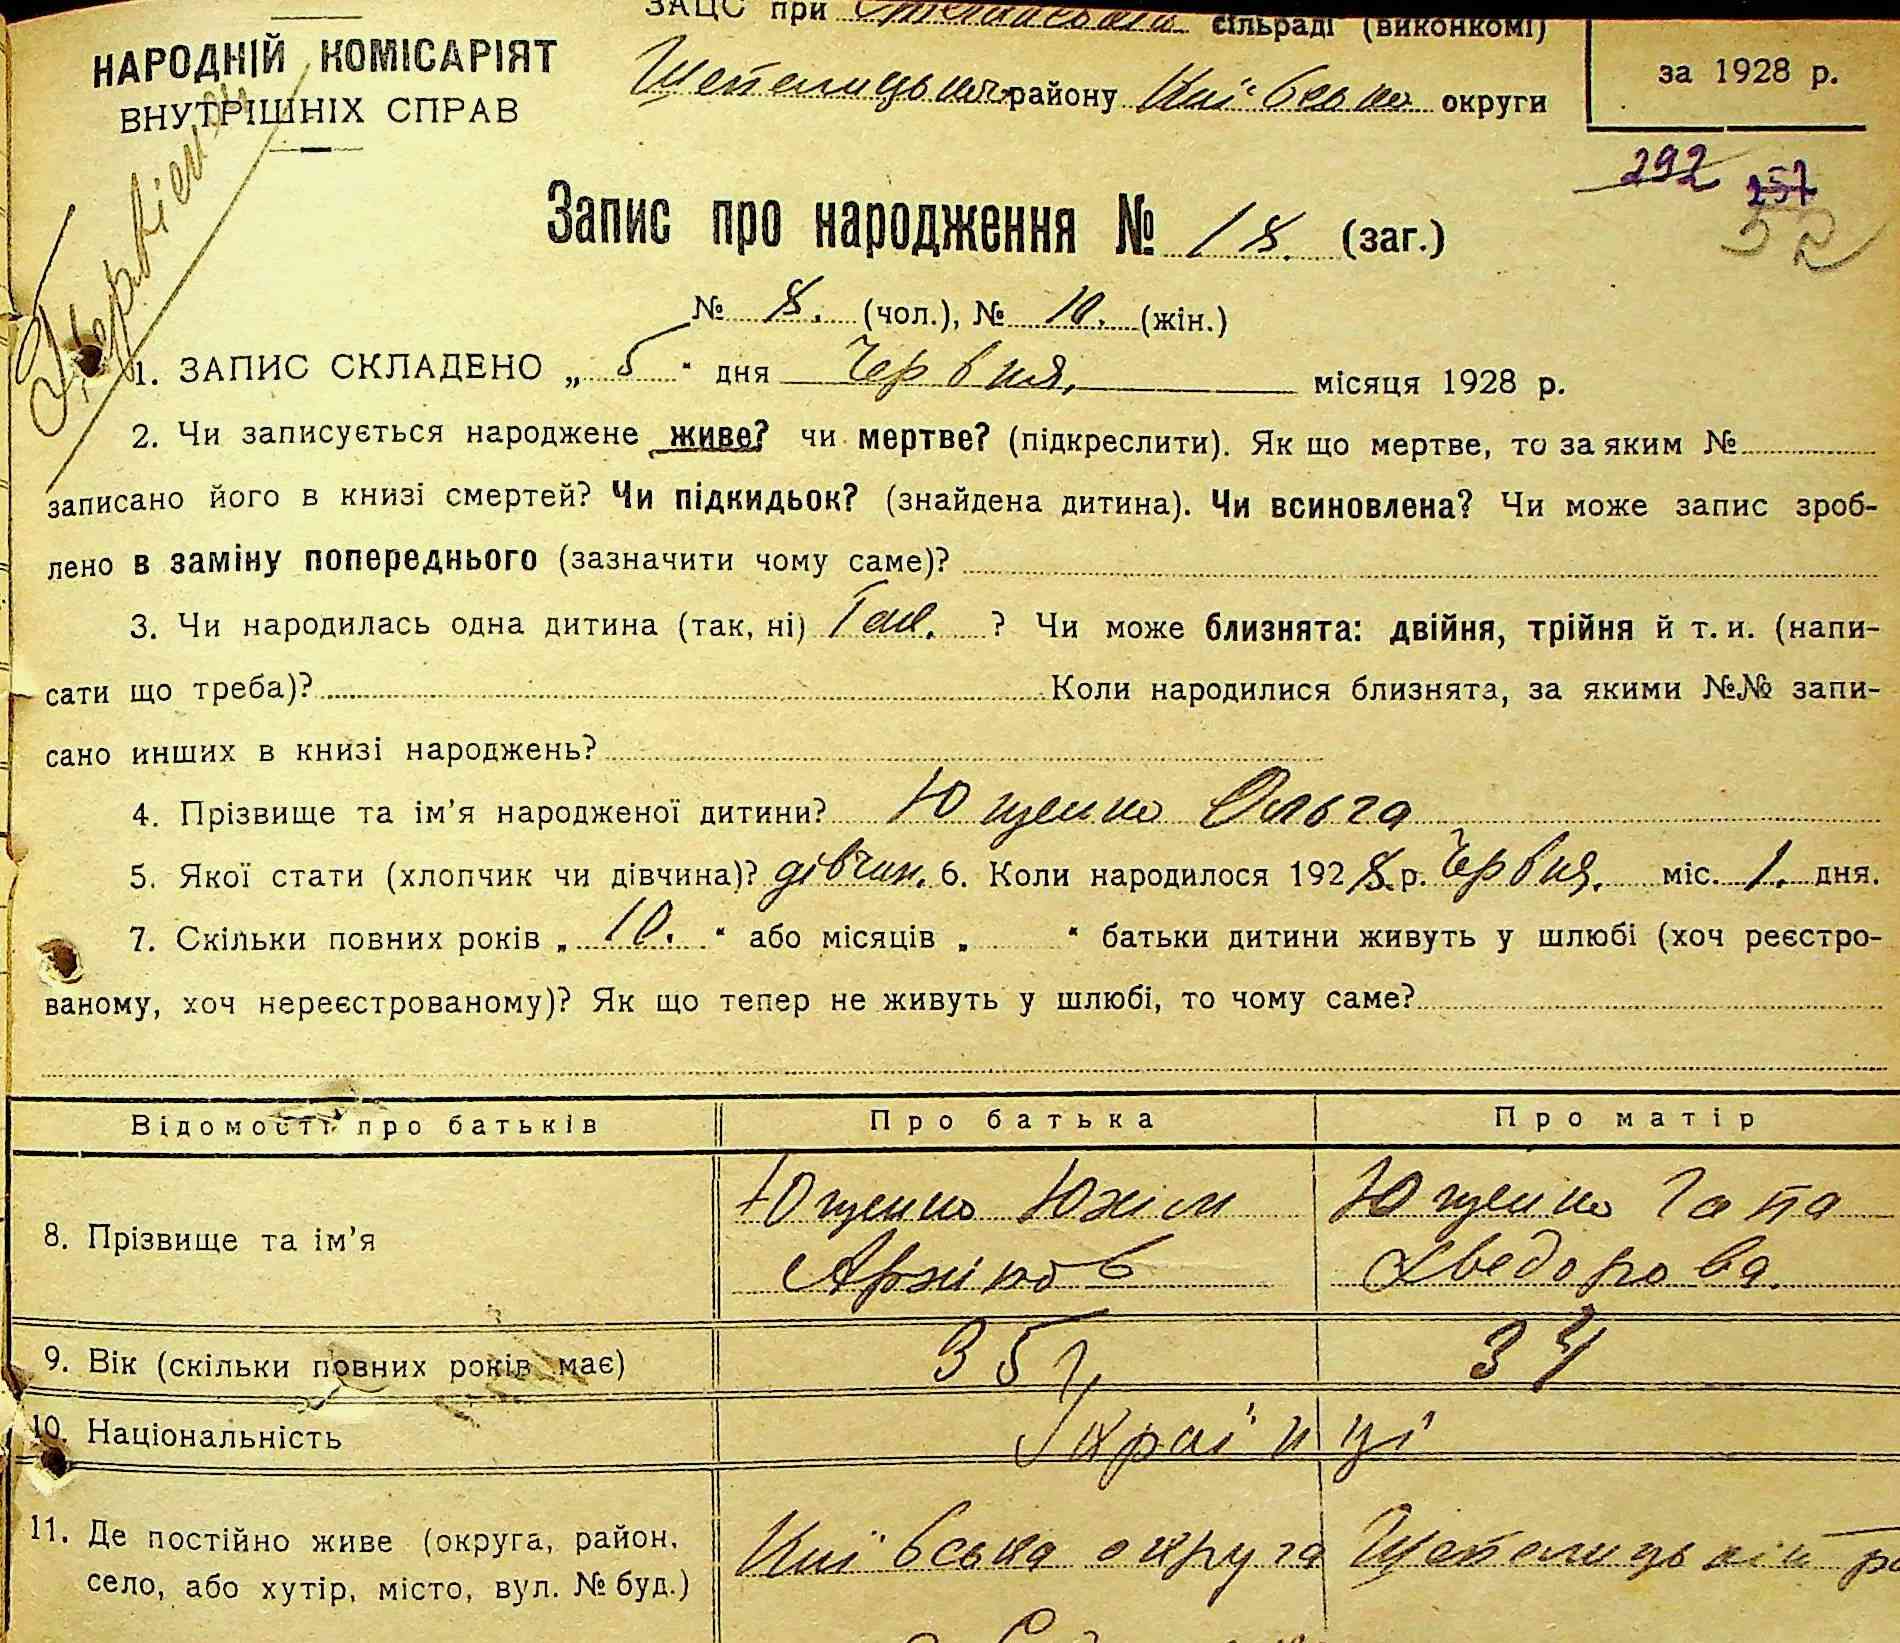 ЗАЦС при сільраді (виконкомі)
НАРОДНІЙ КОМІСАРІЯТ
ВНУТРІШНІХ СПРАВ
району Київсько округи
за 1928 р.
292 257
52
Запис про народження № 18. (заг.)
№ 8. (чол.), № 10. (жін.)
1. ЗАПИС СКЛАДЕНО „ 5 “ дня Червня, місяця 1928 р.
2. Чи записується народжене живе? чи мертве? (підкреслити). Як що мертве, то за яким №
записано його в книзі смертей? Чи підкидьок? (знайдена дитина). Чи всиновлена? Чи може запис зроб-
лено в заміну попереднього (зазначити чому саме)?
3. Чи народилась одна дитина (так, ні) Так. ? Чи може близнята: двійня, трійня й т. и. (напи-
сати що треба)? Коли народилися близнята, за якими №№ запи-
сано инших в книзі народжень?
4. Прізвище та ім’я народженої дитини? Ющенко Ольга
5. Якої стати (хлопчик чи дівчина)? дівчин. 6. Коли народилося 1928 р. Червня. міс. 1. дня.
7. Скільки повних років „ 10. “ або місяців „ “ батьки дитини живуть у шлюбі (хоч реєстро-
ваному, хоч нереєстрованому)? Як що тепер не живуть у шлюбі, то чому саме?
Відомості про батьків Про батька Про матір
8. Прізвище та ім’я Ющенко Юхім Ющенко Гапа
Архіпов Хведорова.
9. Вік (скільки повних років має) 35 34
10. Національність Українці
11. Де постійно живе (округа, район, Київська округа
село, або хутір, місто, вул. № буд.)